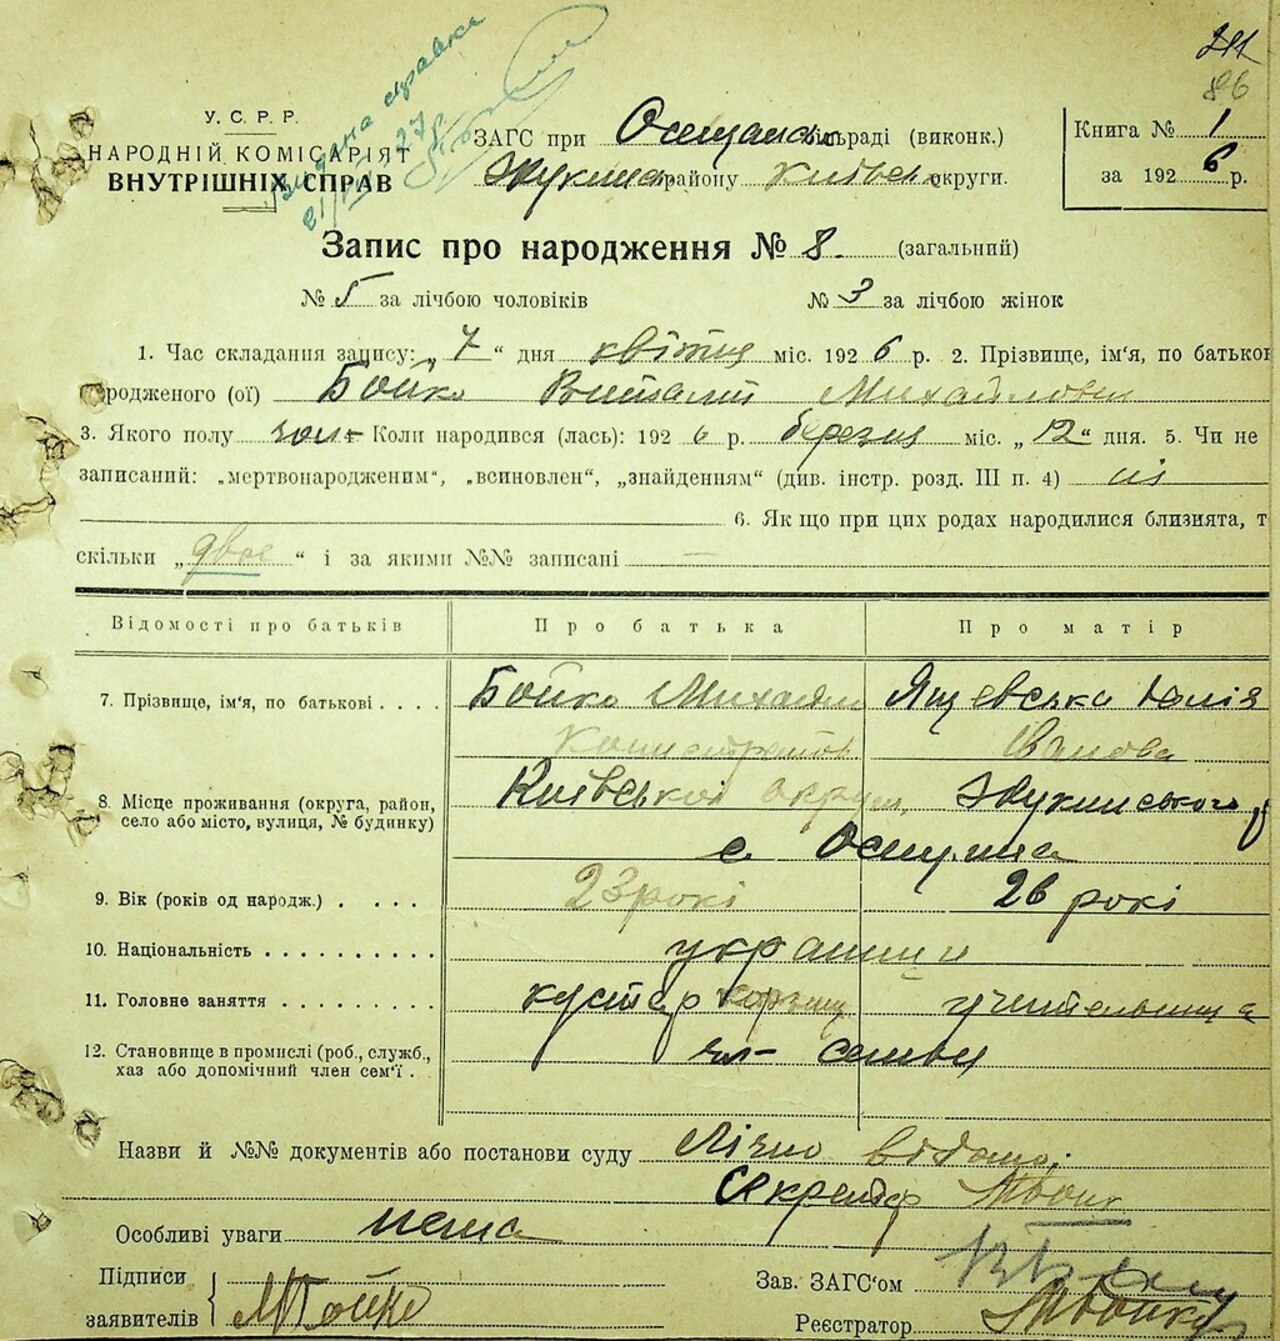 видана справка
21/VI 27
У. С. Р. Р.
НАРОДНІЙ КОМІСАРІЯТ
ВНУТРІШНІХ СПРАВ
86
ЗАГС при Осещанс сільраді (виконк.)
району Київськ округи.
Книга № 1
за 1926 р.
Запис про народження № 8. (загальний)
№ 5 за лічбою чоловіків № 3 за лічбою жінок
1. Час складання запису: „ 7 “ дня квітня міс. 192 6 р. 2. Прізвище, ім'я, по батьков
народженого (ої) Бойко Виталій Михайлович
3. Якого полу чол- Коли народився (лась): 192 6 р. березня міс. „ 12 “ дня. 5. Чи не
записаний: „мертвонародженим“, „всиновлен“, „знайденням“ (див. інстр. розд. III п. 4) ні
6. Як що при цих родах народилися близнята, т
скільки „ двоє “ і за якими №№ записані —
Відомості про батьків Про батька Про матір
7. Прізвище, ім'я, по батькові . . . . Бойко Михайло Ящевська Юлія
Іванова
8. Місце проживання (округа, район, Київської округи,
село або місто, вулиця, № будинку) с.
9. Вік (років од народж.) . . . . 23 рокі 26 рокі
10. Національність . . . . . . . . . . українці
11. Головне заняття . . . . . . . . . кустар учительниця
12. Становище в промислі (роб., служб., чл- семьи
хаз або допомічний член сем'ї .
Назви й №№ документів або постанови суду Лічно відомі.
Секретар МБойк
Особливі уваги нема
Підписи
заявителів МБойко
Зав. ЗАГС'ом
Реєстратор МБойко